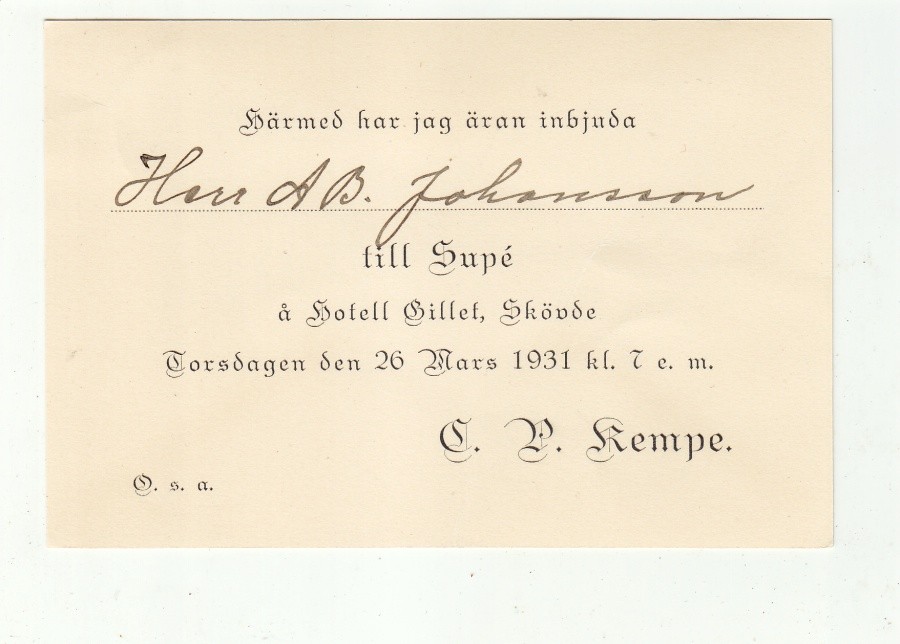 Härmed har jag äran inbjuda
Herr A B. Johansson
till Supé
å Hotell Gillet, Skövde
Torsdagen den 26 Mars 1931 kl. 7 e. m.
C. P. Kempe.
O. s. a.